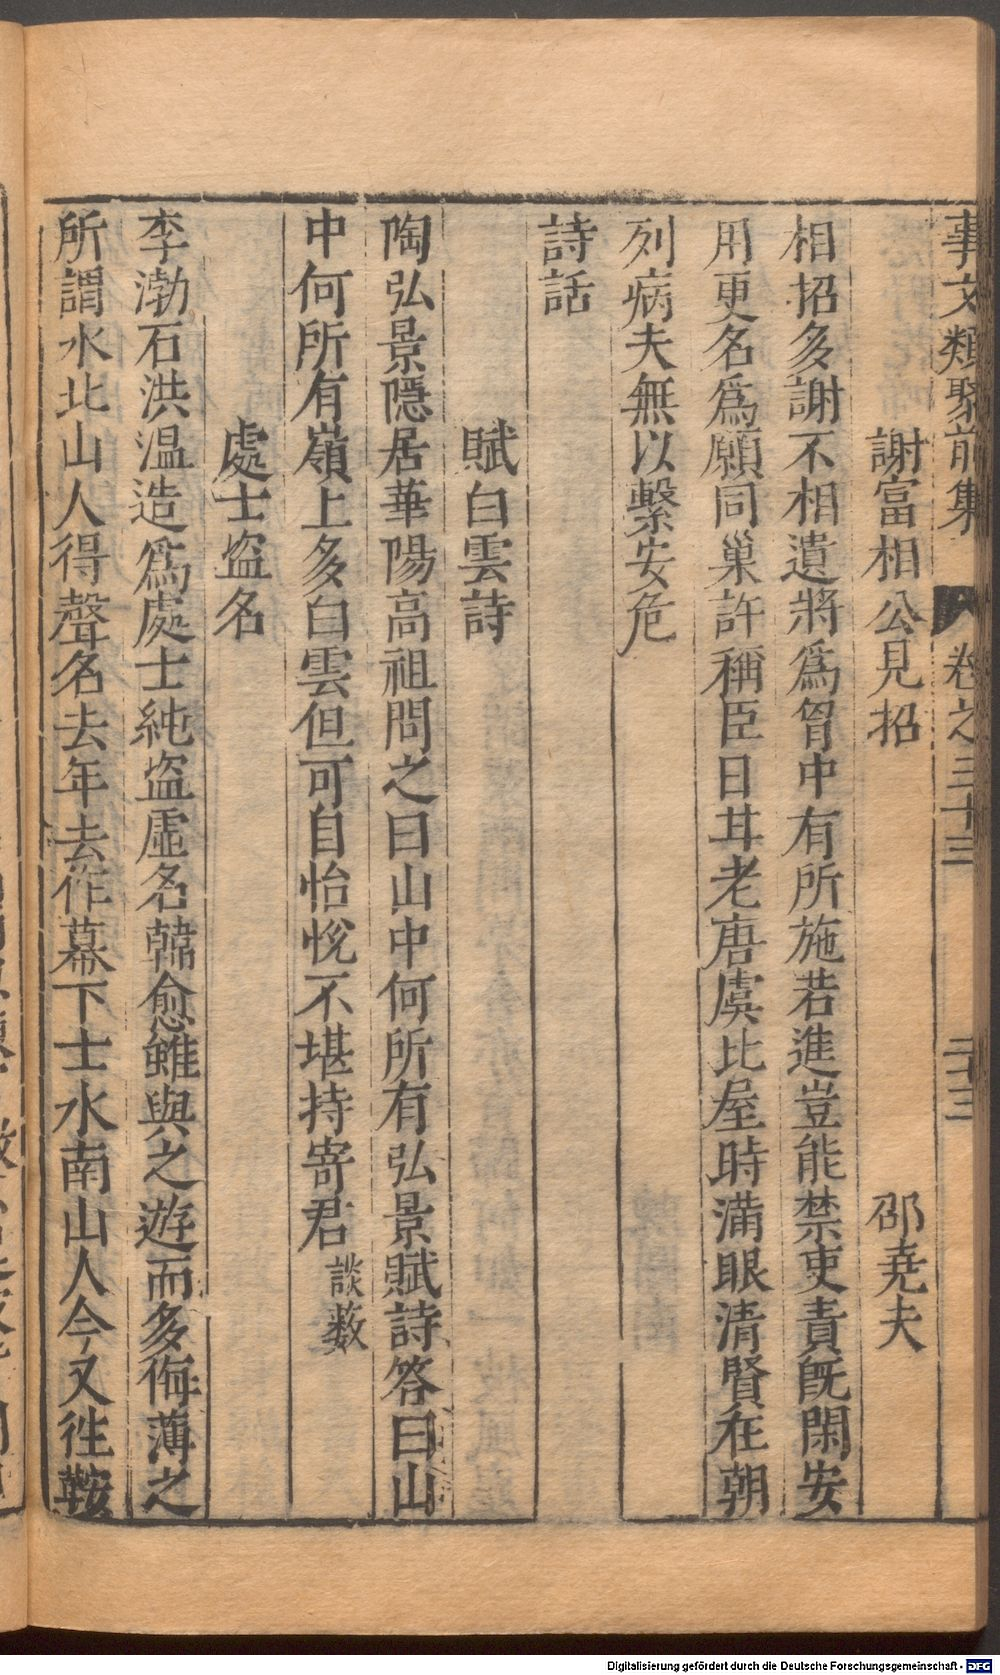 事文類聚前集 卷之三十三 二十三
謝富相公見招 邵堯夫
相招多謝不相遺將爲胷中有所施若進豈能禁吏責旣閑安
用更名爲願同巢許稱臣日甘老唐虞比屋時滿眼清賢在朝
列病夫無以繫安危
詩話
賦白雲詩
陶弘景隱居華陽高祖問之曰山中何所有弘景賦詩答曰山
中何所有嶺上多白雲但可自怡悅不堪持寄君 談藪
處士盗名
李渤石洪温造爲處士純盗虛名韓愈雖與之遊而多侮薄之
所謂水北山人得聲名去年去作幕下士水南山人今又徃鞍
Digitalisierung gefördert durch die Deutsche Forschungsgemeinschaft - DFG